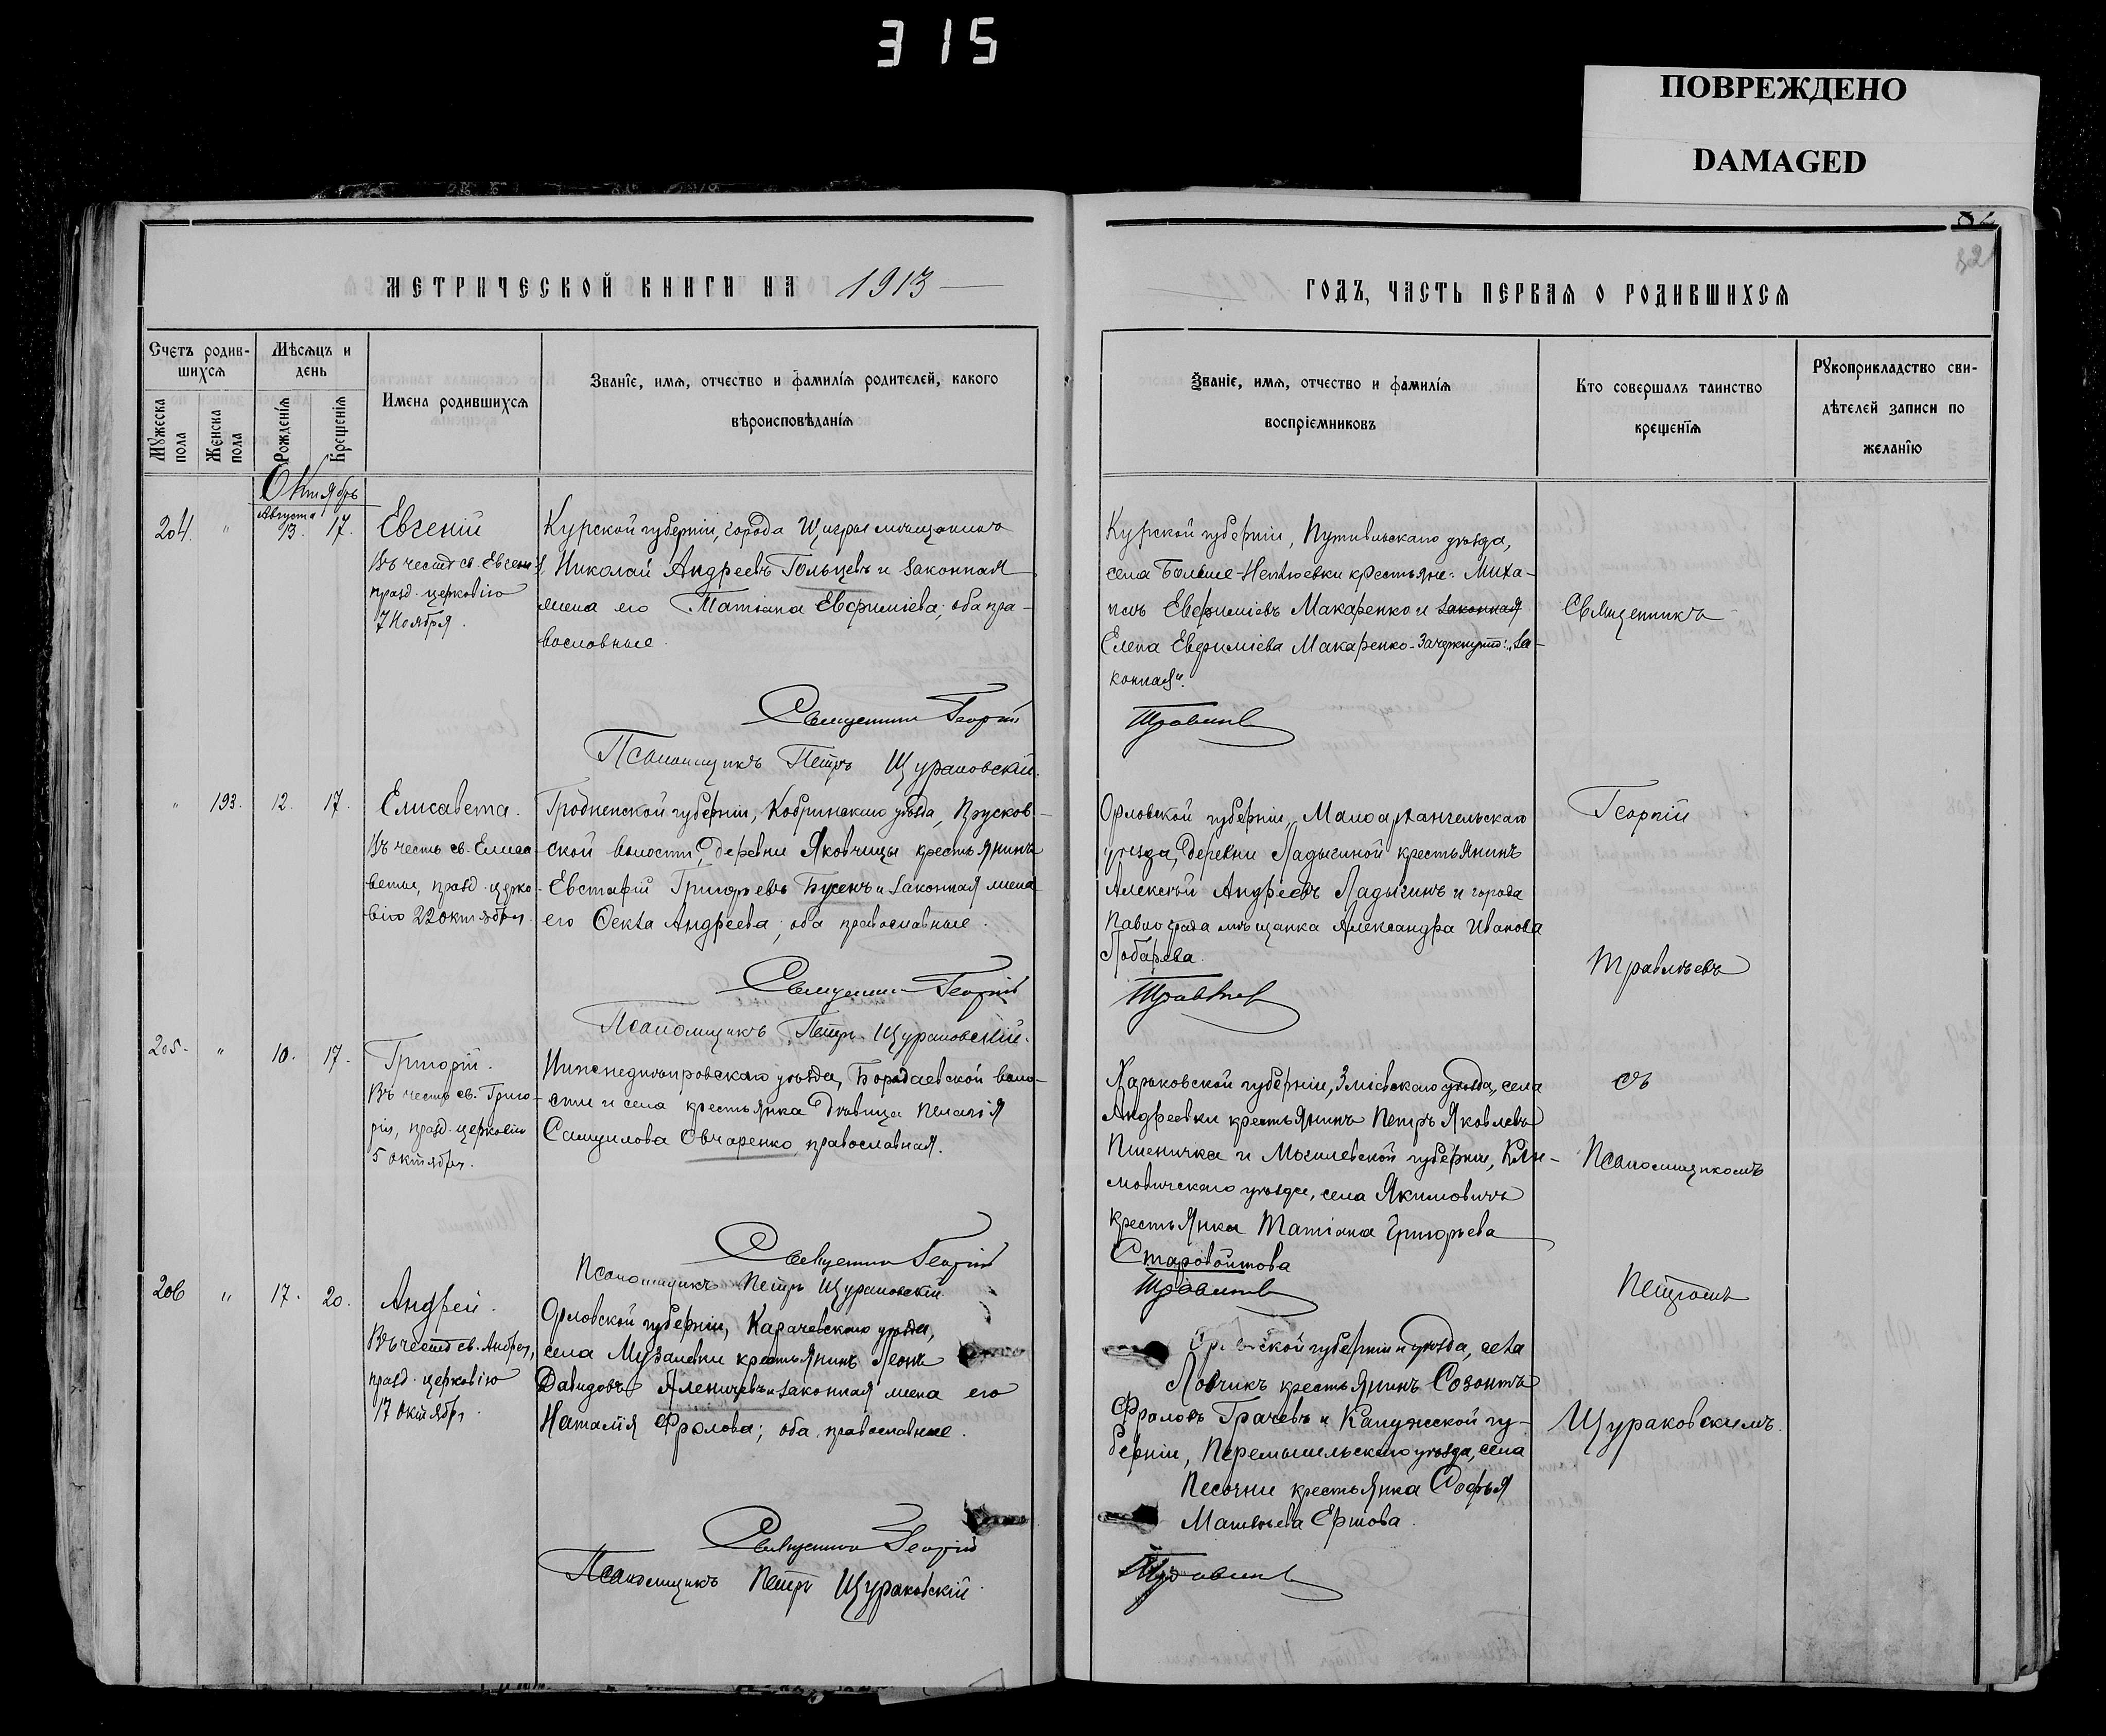 315
ПОВРЕЖДЕНО
DAMAGED
82
МЕТРИЧЕСКОЙ КНИГИ НА 1913
Счетъ родив-
шихся
Мѣсяцъ и
день
Мужеска пола
Женска пола
Рожденія
Крещенія
Имена родившихся
Званіе, имя, отчество и фамилія родителей, какого
вѣроисповѣданія
Октябрь
204. " Августа 13. 17.
Евгеній
Въ честь св. Евгенія,
празд. церковію
7 Ноября.
Курской губерніи, города Щигры мѣщанинъ
Николай Андреевъ Гольцевъ и законная
жена его Татіана Евфиміева; оба пра-
вославные.
Священникъ Георгій
Псаломщикъ Петръ Щураковскій.
" 193. 12. 17.
Елисавета.
Въ честь св. Елиса-
веты, празд. церко-
вію 22 октября.
Гродненской губерніи, Кобринскаго уѣзда, Прусков-
ской волости, деревни Яковчицы крестьянинъ
Евстафій Григорьевъ Бусенъ и законная жена
его Ѳекла Андреева; оба православные.
Священникъ Георгій
Псаломщикъ Петръ Щураковскій.
205. " 10. 17.
Григорій.
Въ честь св. Григо-
рія, празд. церковію
5 октября.
Нижнеднѣпровскаго уѣзда, Бородаевской воло-
сти и села крестьянка дѣвица Пелагія
Самуилова Овчаренко, православная.
Священникъ Георгій
Псаломщикъ Петръ Щураковскій
206 " 17. 20.
Андрей.
Въ честь св. Андрея,
празд. церковію
17 октября.
Орловской губерніи, Карачевскаго уѣзда,
села Мужалевки крестьянинъ Леонъ
Давидовъ Аленичевъ и законная жена его
Наталія Фролова; оба православные.
Священникъ Георгій
Псаломщикъ Петръ Щураковскій.
ГОДЪ, ЧАСТЬ ПЕРВАЯ О РОДИВШИХСЯ
Званіе, имя, отчество и фамилія
воспріемниковъ
Кто совершалъ таинство
крещенія
Рукоприкладство сви-
дѣтелей записи по
желанію
Курской губерніи, Путивльскаго уѣзда,
села Больше-Неплюевки крестьяне: Миха-
илъ Евфиміевъ Макаренко и законная
Елена Евфиміева Макаренко. Зачеркнуто: „за-
конная“.
Травлѣевъ
Орловской губерніи, Малоархангельскаго
уѣзда, деревни Ладыгиной крестьянинъ
Алексѣй Андреевъ Ладыгинъ и города
Павлограда мѣщанка Александра Иванова
Лобарева.
Травлѣевъ
Харьковской губерніи, Зміевскаго уѣзда, села
Андреевки крестьянинъ Петръ Яковлевъ
Пшеничка и Могилевской губерніи, Кли-
мовичскаго уѣзда, села Якимовичъ
крестьянка Татіана Григорьева
Старовойтова
Травлѣевъ
Орловской губерніи и уѣзда, села
Ловчикъ крестьянинъ Созонтъ
Фроловъ Грачевъ и Калужской гу-
берніи, Перемышльскаго уѣзда, села
Песочни крестьянка Софья
Матвѣева Ершова.
Травлѣевъ
Священникъ
Георгій
Травлѣевъ
съ
Псаломщикомъ
Петромъ
Щураковскимъ.